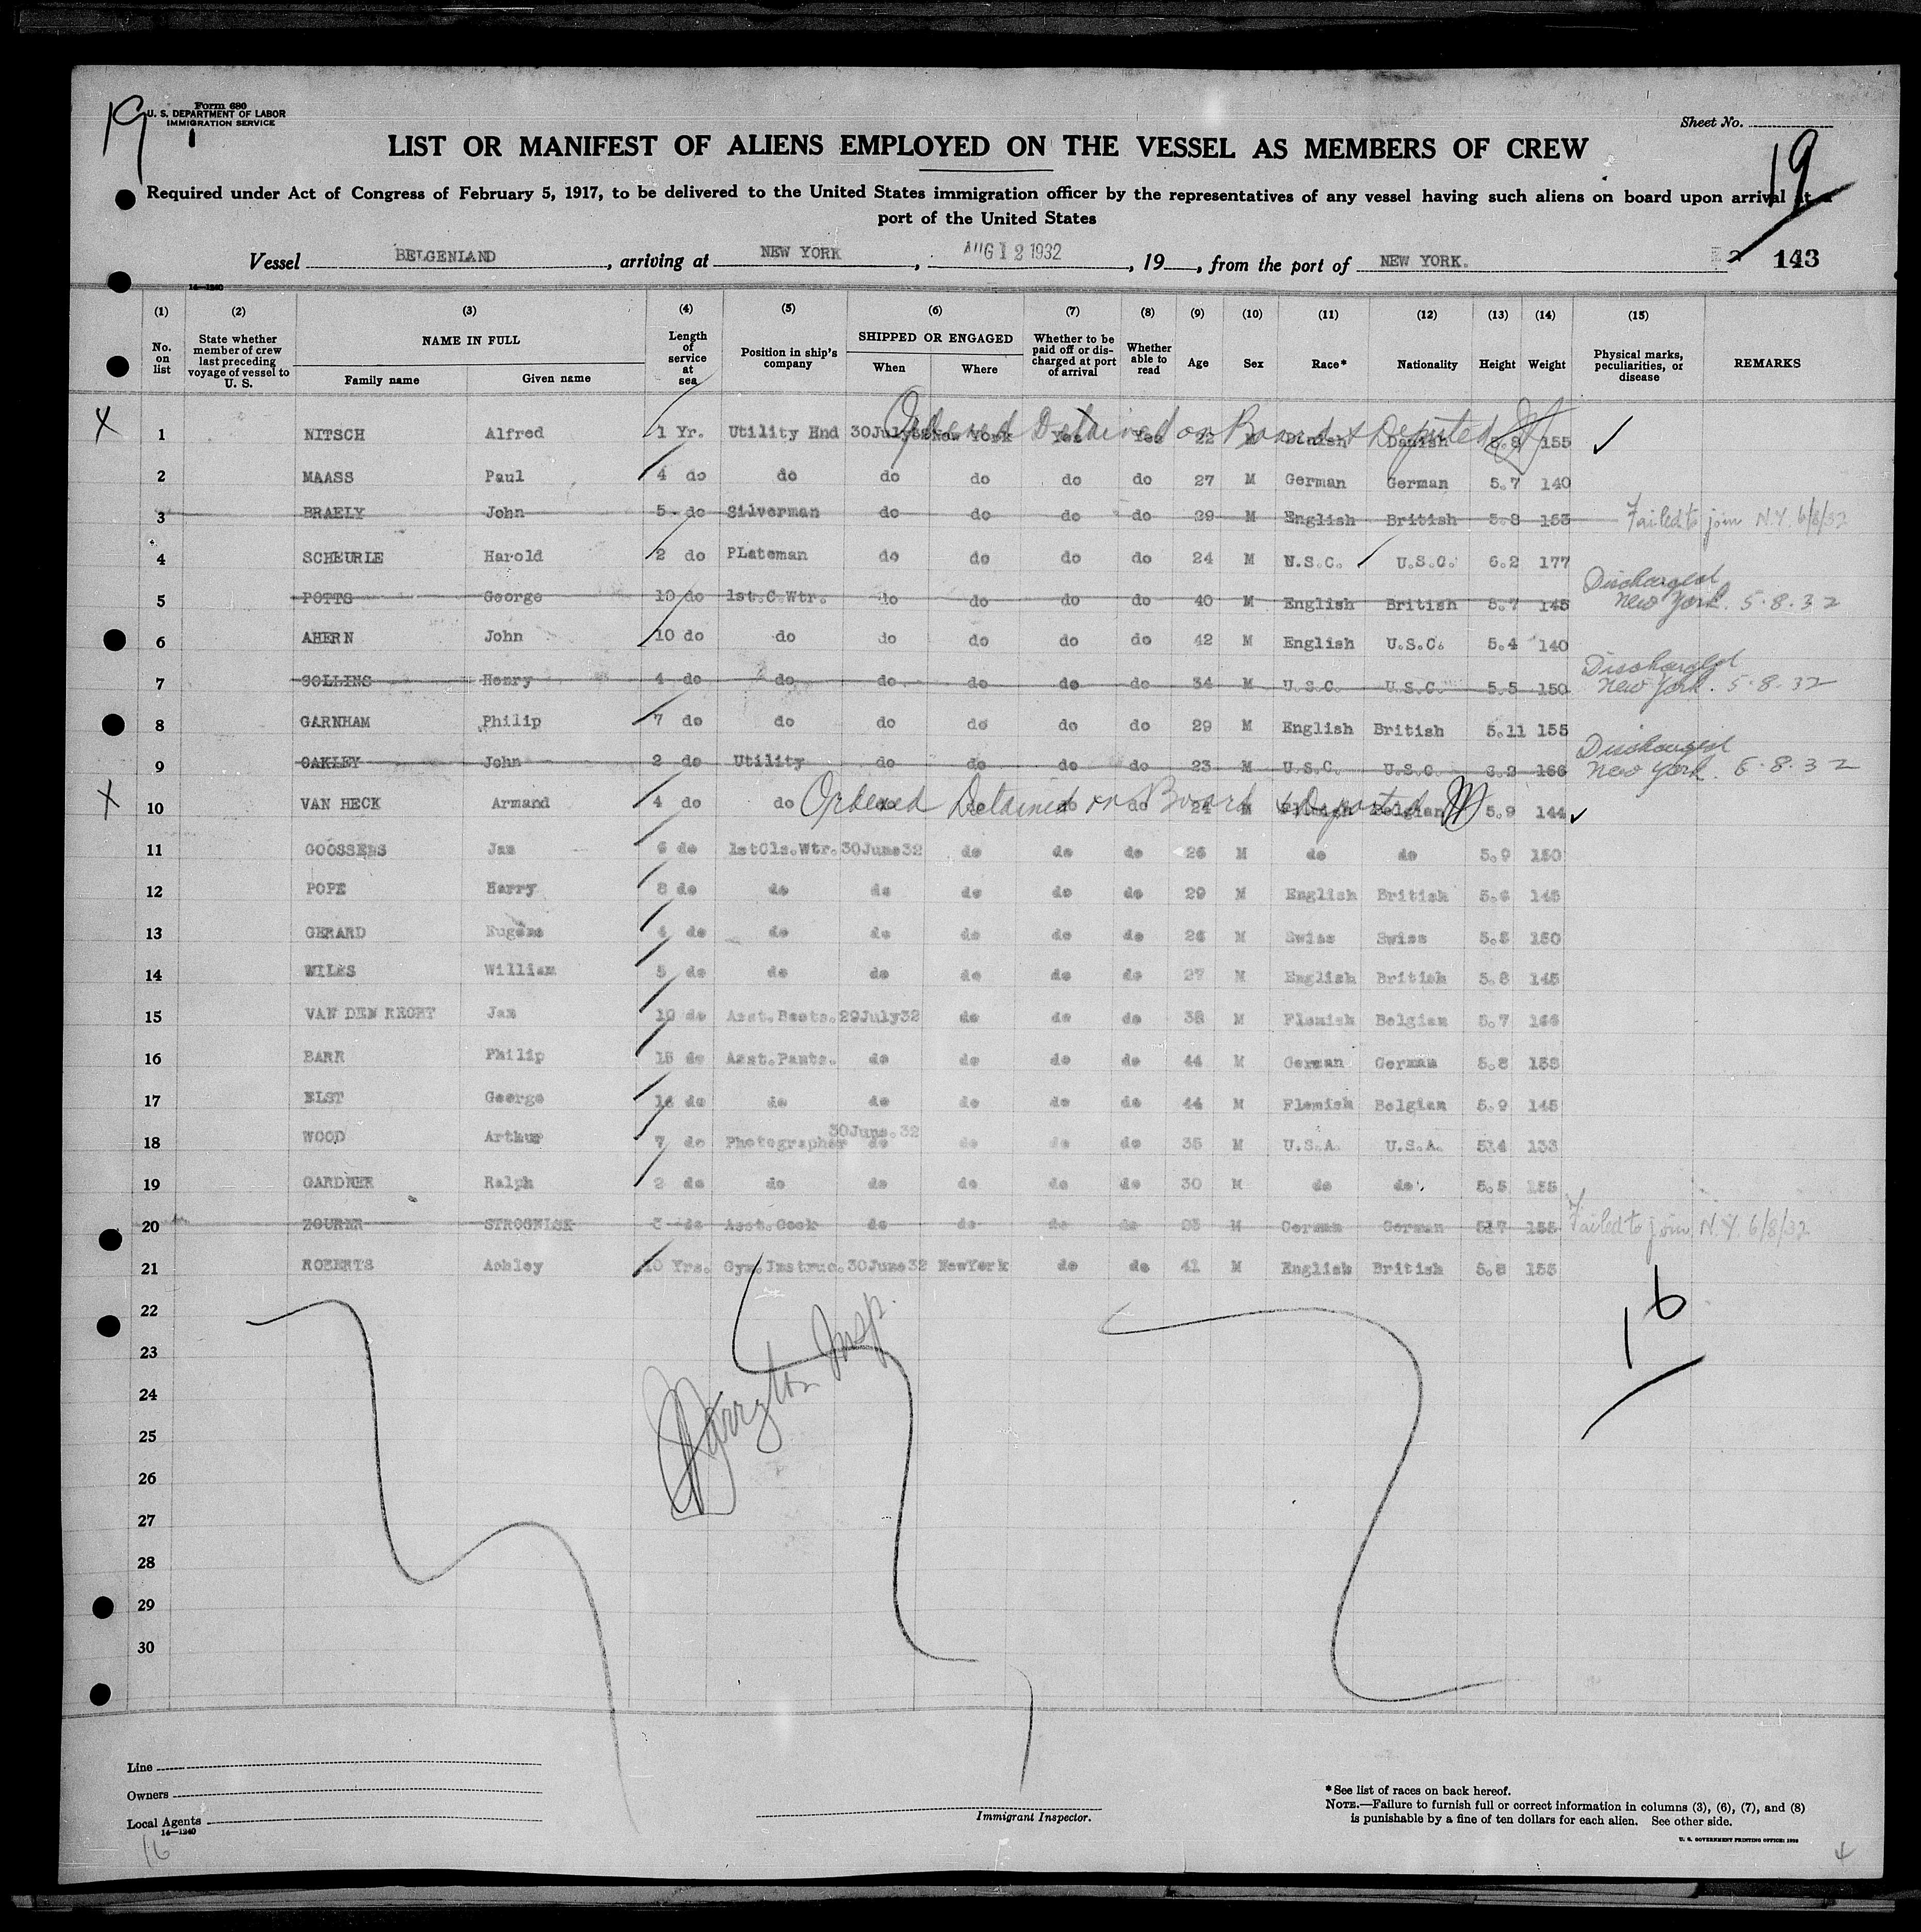 19
Form 680
U. S. DEPARTMENT OF LABOR
IMMIGRATION SERVICE
Sheet No.
19
LIST OR MANIFEST OF ALIENS EMPLOYED ON THE VESSEL AS MEMBERS OF CREW
Required under Act of Congress of February 5, 1917, to be delivered to the United States immigration officer by the representatives of any vessel having such aliens on board upon arrival at a
port of the United States
Vessel BELGENLAND, arriving at NEW YORK, AUG 12 1932, 19, from the port of NEW YORK. 143
14—1240
(1) (2) (3) (4) (5) (6) (7) (8) (9) (10) (11) (12) (13) (14) (15)
No. on list State whether member of crew last preceding voyage of vessel to U. S. NAME IN FULL Family name Given name Length of service at sea Position in ship's company SHIPPED OR ENGAGED When Where Whether to be paid off or discharged at port of arrival Whether able to read Age Sex Race* Nationality Height Weight Physical marks, peculiarities, or disease REMARKS
Ordered Detained on Board & Deported
X 1 NITSCH Alfred 1 Yr. Utility Hnd 30July New York Yes Yes 22 M Danish Danish 5.8 155 ✓
2 MAASS Paul 4 do do do do do do 27 M German German 5.7 140
3 BRAELY John 5 do Silverman do do do do 29 M English British 5.8 155 Failed to join N.Y. 6/8/32
4 SCHEURLE Harold 2 do PLateman do do do do 24 M U.S.C. U.S.C. 6.2 177
5 POTTS George 10 do 1st.C.Wtr. do do do do 40 M English British 5.7 145 Discharged New York. 5.8.32
6 AHERN John 10 do do do do do do 42 M English U.S.C. 5.4 140
7 COLLINS Henry 4 do do do do do do 34 M U.S.C. U.S.C. 5.5 150 Discharged New York. 5.8.32
8 GARNHAM Philip 7 do do do do do do 29 M English British 5.11 155
9 OAKLEY John 2 do Utility do do do do 23 M U.S.C. U.S.C. 6.2 166 Discharged New York. 5.8.32
Ordered Detained on Board & Deported
X 10 VAN HECK Armand 4 do do do do do do 24 M Flemish Belgian 5.9 144 ✓
11 GOOSSENS Jan 6 do 1stCls.Wtr. 30June32 do do do 26 M do do 5.9 150
12 POPE Harry 8 do do do do do do 29 M English British 5.6 145
13 GERARD Eugene 4 do do do do do do 26 M Swiss Swiss 5.5 150
14 WILES William 5 do do do do do do 27 M English British 5.8 145
15 VAN DEN Jan 10 do Asst. 29July32 do do do 38 M Flemish Belgian 5.7 166
16 BARR Philip 15 do Asst.Pants. do do do do 44 M German German 5.8 158
17 ELST George 14 do do do do do do 44 M Flemish Belgian 5.9 145
18 WOOD Arthur 7 do Photographer 30June.32 do do do do 35 M U.S.A. U.S.A. 5.4 133
19 GARDNER Ralph 2 do do do do do do 30 M do do 5.5 155
20 do Asst.Cook do do do do M German German 5.7 155 Failed to join N.Y. 6/8/32
21 ROBERTS Ashley 10 Yrs. Gym.Instruc. 30June32 NewYork do do 41 M English British 5.8 155
22
23
24
25
26
27
28
29
30
16
Insp.
Line
Owners
Local Agents
14—1240
16
Immigrant Inspector.
*See list of races on back hereof.
NOTE.—Failure to furnish full or correct information in columns (3), (6), (7), and (8)
is punishable by a fine of ten dollars for each alien. See other side.
U. S. GOVERNMENT PRINTING OFFICE:
4